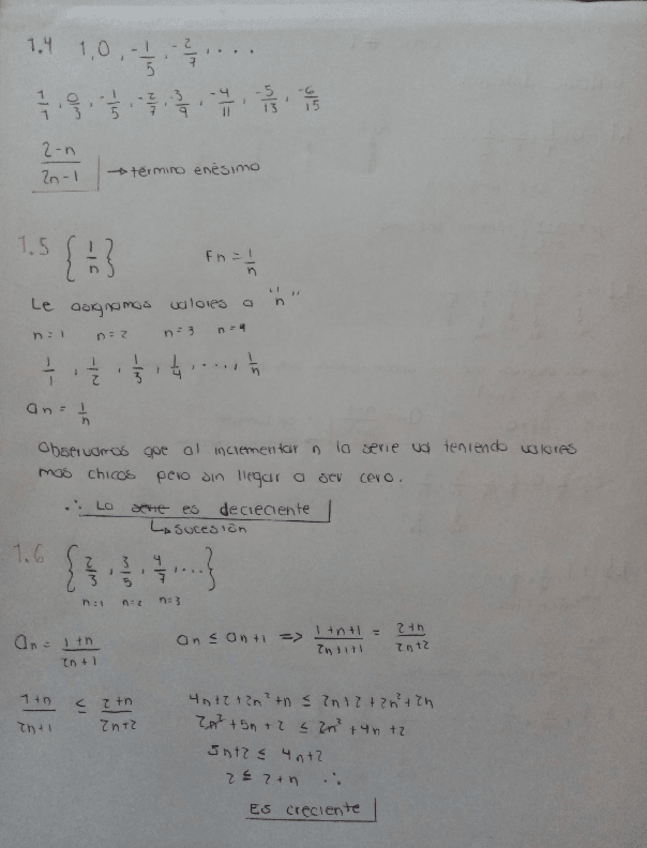 1.4 1, 0, -1/5, -2/7, ....
1/1, 0/3, -1/5, -2/7, -3/9, -4/11, -5/13, -6/15
2-n/2n-1 → término enésimo
1.5 {1/n} Fn = 1/n
Le asignamos valores a "n"
n=1 n=2 n=3 n=4
1/1, 1/2, 1/3, 1/4, ..., 1/n
an = 1/n
Observamos que al incrementar n la serie va teniendo valores
mas chicos pero sin llegar a ser cero.
∴ La serie es decreciente
↳ sucesión
1.6 {2/3, 3/5, 4/7, ...}
n=1 n=2 n=3
an = 1+n/2n+1 an ≤ an+1 => 1+n+1/2n+1+1 = 2+n/2n+2
1+n/2n+1 ≤ 2+n/2n+2 4n+2+2n²+n ≤ 2n+2+2n²+2n
2n²+5n+2 ≤ 2n²+4n+2
5n+2 ≤ 4n+2
2 ≤ 2+n ∴
Es creciente